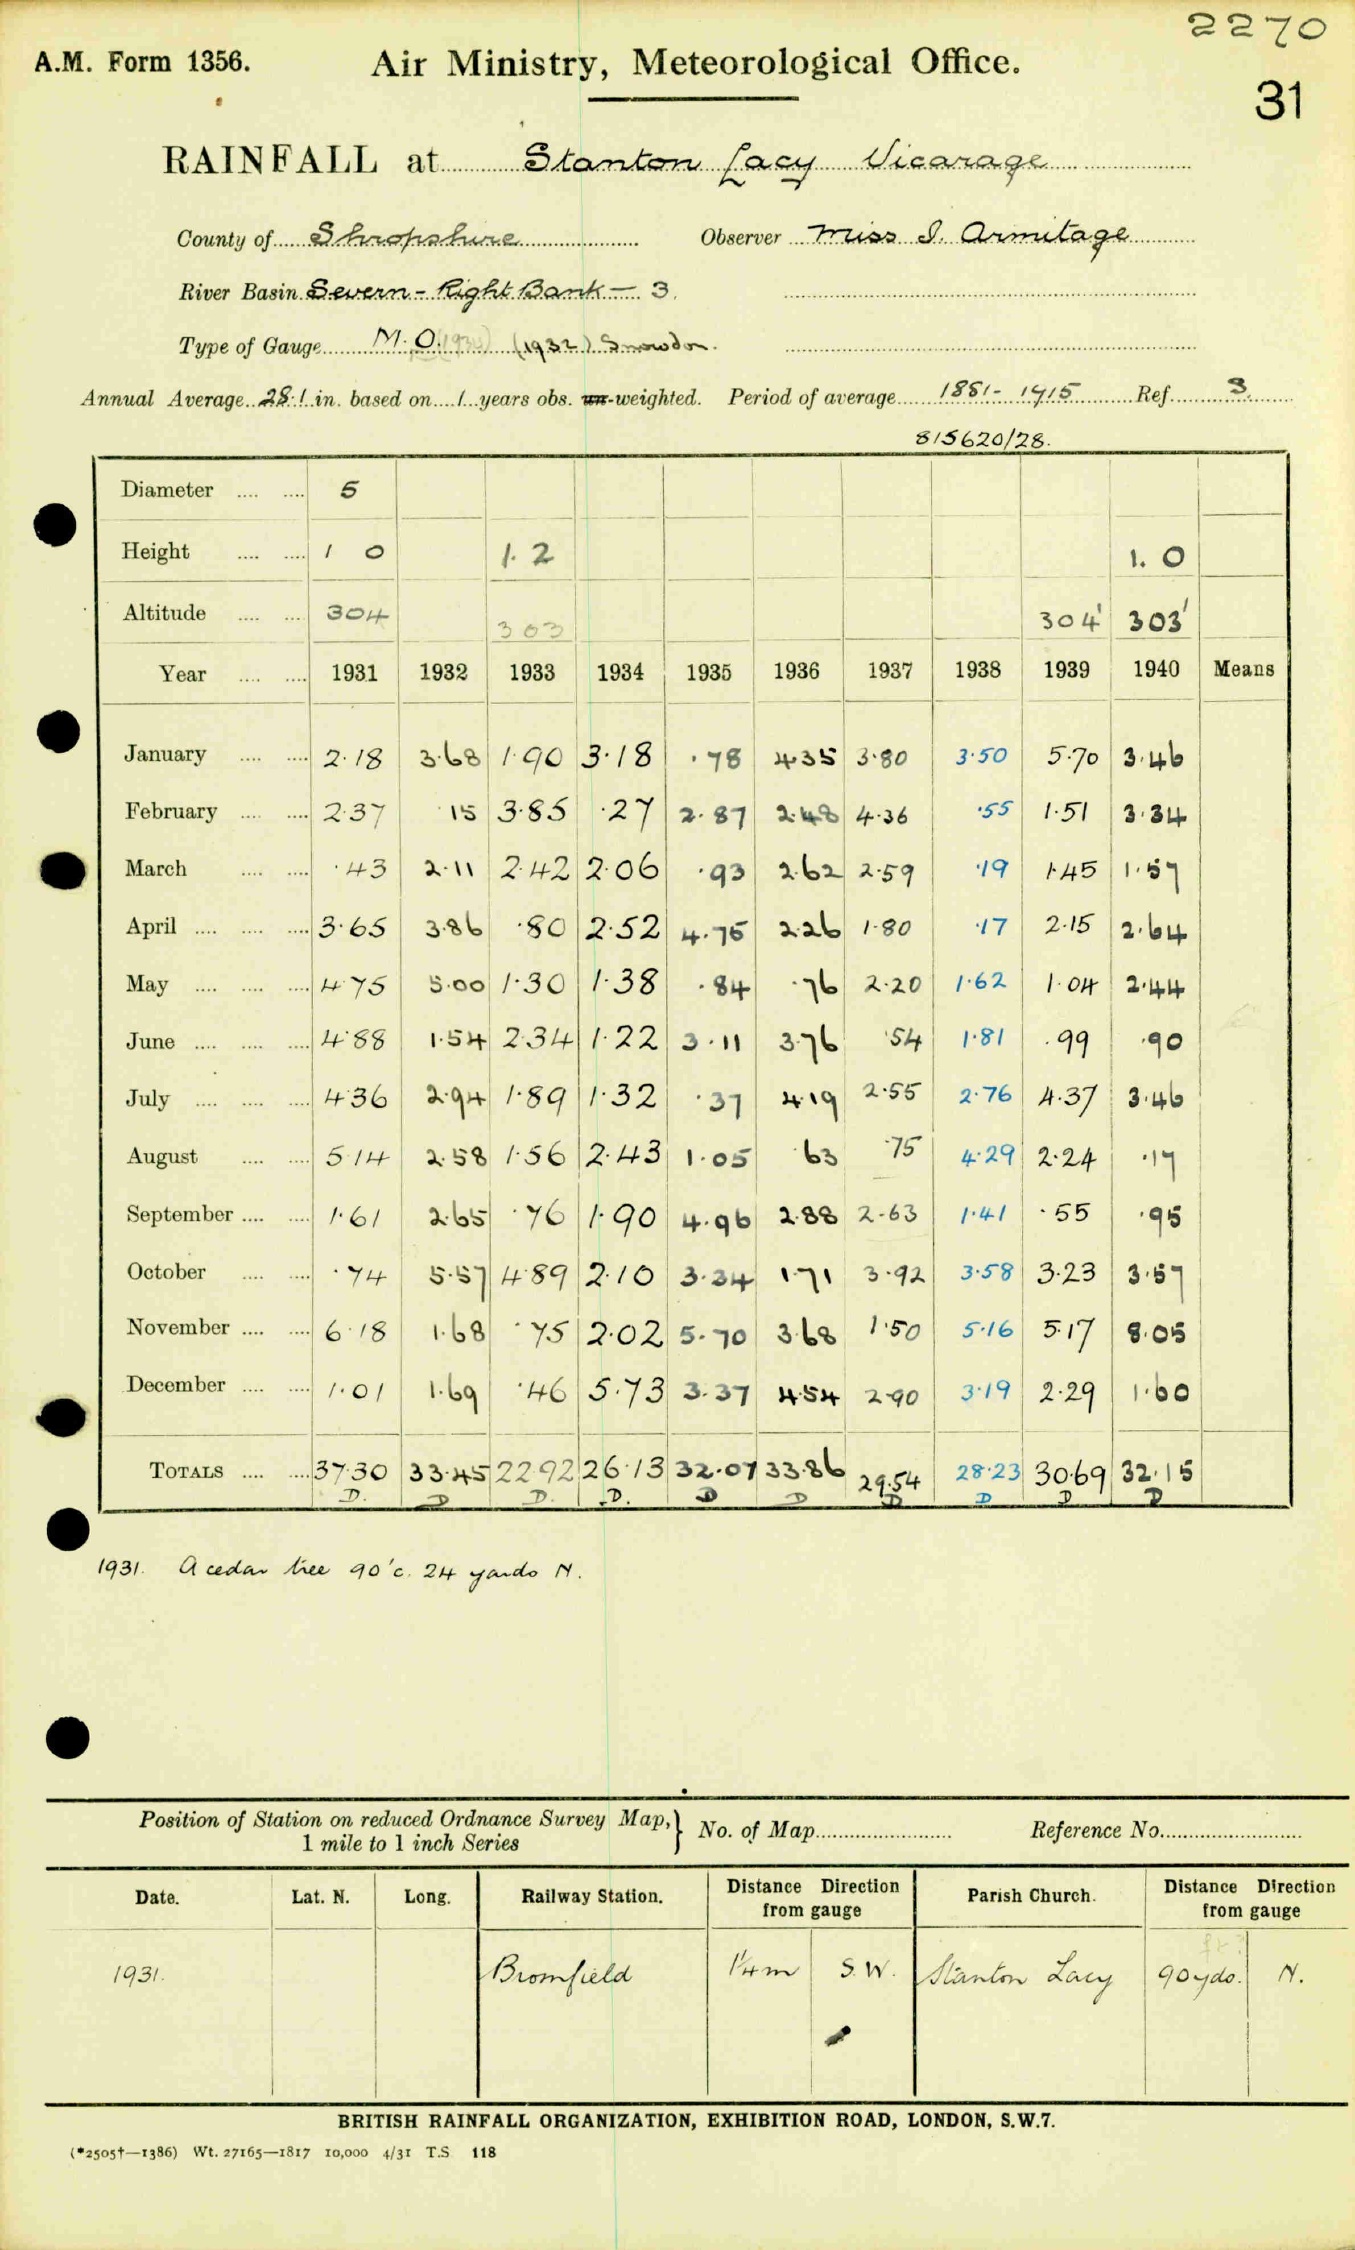 2270
A.M. Form 1356. Air Ministry, Meteorological Office.
31
RAINFALL at Stanton Lacy Vicarage
County of Shropshire Observer Miss I. Armitage
River Basin Severn - Right Bank - 3.
Type of Gauge M.O. (1932) Snowdon.
Annual Average 28.1 in. based on 1 years obs. un-weighted. Period of average 1881-1915 Ref. 3.
815620/28.
Diameter .... .... 5
Height .... .... 1 0 1.2 1.0
Altitude .... .... 304 303 304' 303'
Year .... .... 1931 1932 1933 1934 1935 1936 1937 1938 1939 1940 Means
January .... .... 2.18 3.68 1.90 3.18 .78 4.35 3.80 3.50 5.70 3.46
February .... .... 2.37 15 3.85 .27 2.87 2.48 4.36 .55 1.51 3.34
March .... .... .43 2.11 2.42 2.06 .93 2.62 2.59 .19 1.45 1.57
April .... .... .... 3.65 3.86 .80 2.52 4.75 2.26 1.80 .17 2.15 2.64
May .... .... .... 4.75 5.00 1.30 1.38 .84 .76 2.20 1.62 1.04 2.44
June .... .... .... 4.88 1.54 2.34 1.22 3.11 3.76 .54 1.81 .99 .90
July .... .... .... 4.36 2.94 1.89 1.32 .37 4.19 2.55 2.76 4.37 3.46
August .... .... 5.14 2.58 1.56 2.43 1.05 .63 .75 4.29 2.24 .17
September .... .... 1.61 2.65 .76 1.90 4.96 2.88 2.63 1.41 .55 .95
October .... .... .74 5.57 4.89 2.10 3.34 1.71 3.92 3.58 3.23 3.57
November .... .... 6.18 1.68 .75 2.02 5.70 3.68 1.50 5.16 5.17 8.05
December .... .... 1.01 1.69 .46 5.73 3.37 4.54 2.90 3.19 2.29 1.60
TOTALS .... .... 37.30 33.45 22.92 26.13 32.07 33.86 29.54 28.23 30.69 32.15
D. D D. D. D D D D D D
1931. A cedar tree 90' c. 24 yards N.
Position of Station on reduced Ordnance Survey Map,} No. of Map Reference No.
1 mile to 1 inch Series
Date. Lat. N. Long. Railway Station. Distance Direction from gauge Parish Church. Distance Direction from gauge
1931. Bromfield 1¼ m S.W. Stanton Lacy 90 yds. N.
BRITISH RAINFALL ORGANIZATION, EXHIBITION ROAD, LONDON, S.W.7.
(*2505†—1386) Wt. 27165—1817 10,000 4/31 T.S 118